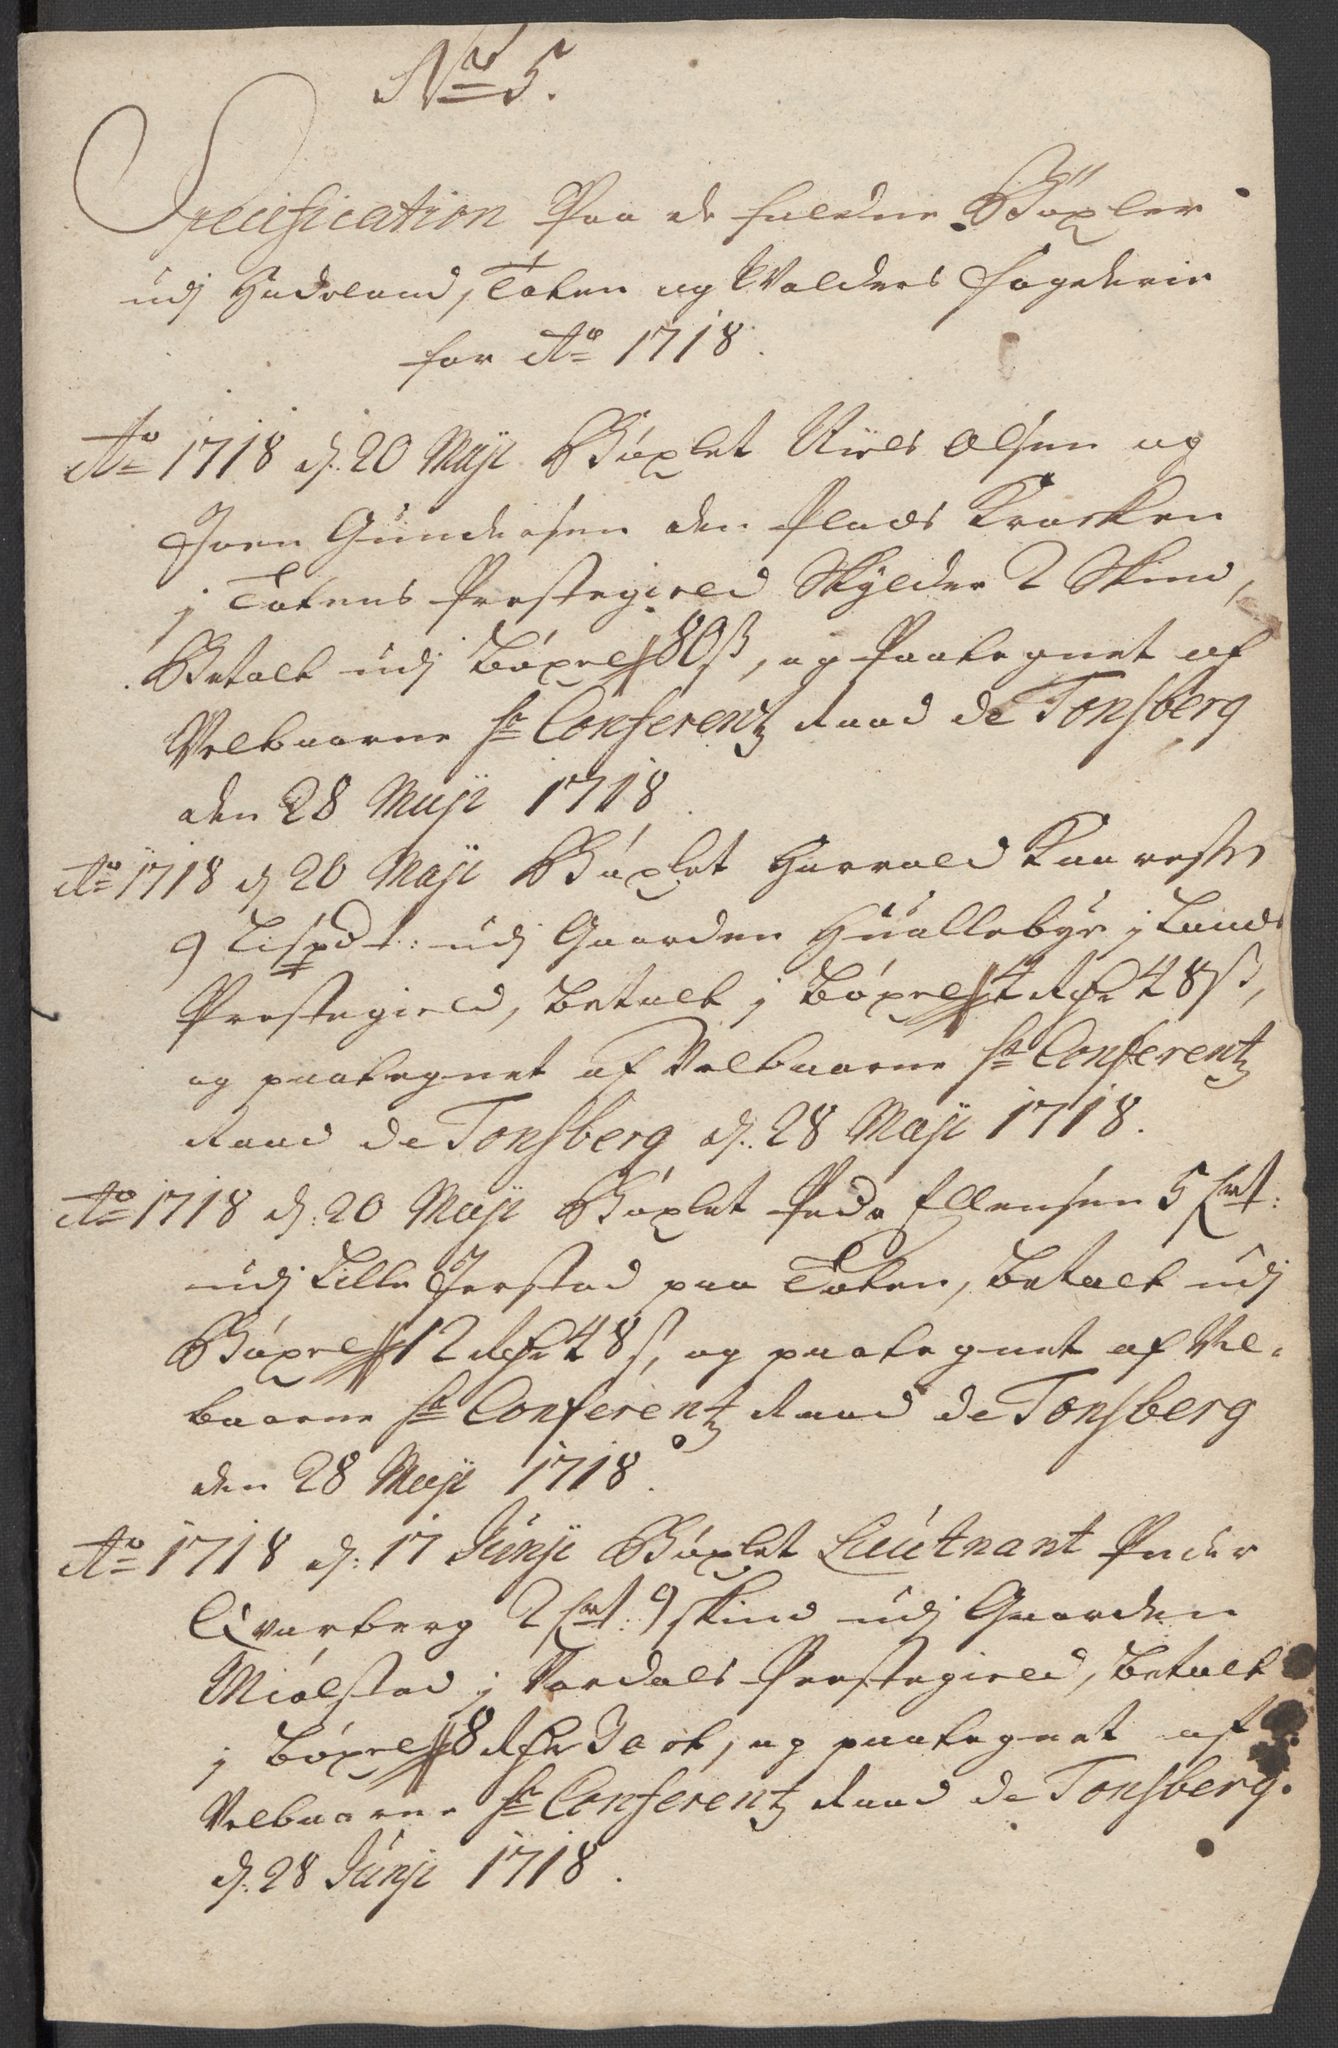 No 5.
Specification Paa de faldne Bøxler
udj Hadeland, Toten og Walders fogderie
for Ao 1718.
Ao 1718 d. 20 Maji Bøxlet Niels Olsen og
Joen Gundersen den Plads Krosken
j Totens Prestegield Skylder 2 Skind,
Betalt udj Bøxel 80 ß, og Paategnet af
Velbaarne Hr Conferentz Raad de Tonsberg
den 28 Maji 1718.
Ao 1718 d. 20 Maji Bøxlet Harrald
9 Lispd t: udj Gaarden Huallebye j Lands
Prestegield, Betalt j Bøxel 4 Rdr 48 ß,
og paategnet af Velbaarne Hr Conferentz
Raad de Tonsberg d. 28 Maji 1718.
Ao 1718 d: 20 Maji Bøxlet Peder Ellensen 5
udj Lille Jerstad paa Toten, Betalt udj
Bøxel 12 Rdr 48 s, og paategnet af Vel-
baarne Hr Conferentz Raad de Tonsberg
den 28 Maji 1718.
Ao 1718 d: 17 Junji Bøxlet Lieutnant Peder
Qvarberg 2 9 skind udj Gaarden
Miølstad j Vardals Prestegield, Betalt
j Bøxel 8 Rdr 3 ort, og paategnet af
Velbaarne Hr Conferentz Raad de Tonsberg.
d. 28 Junji 1718.